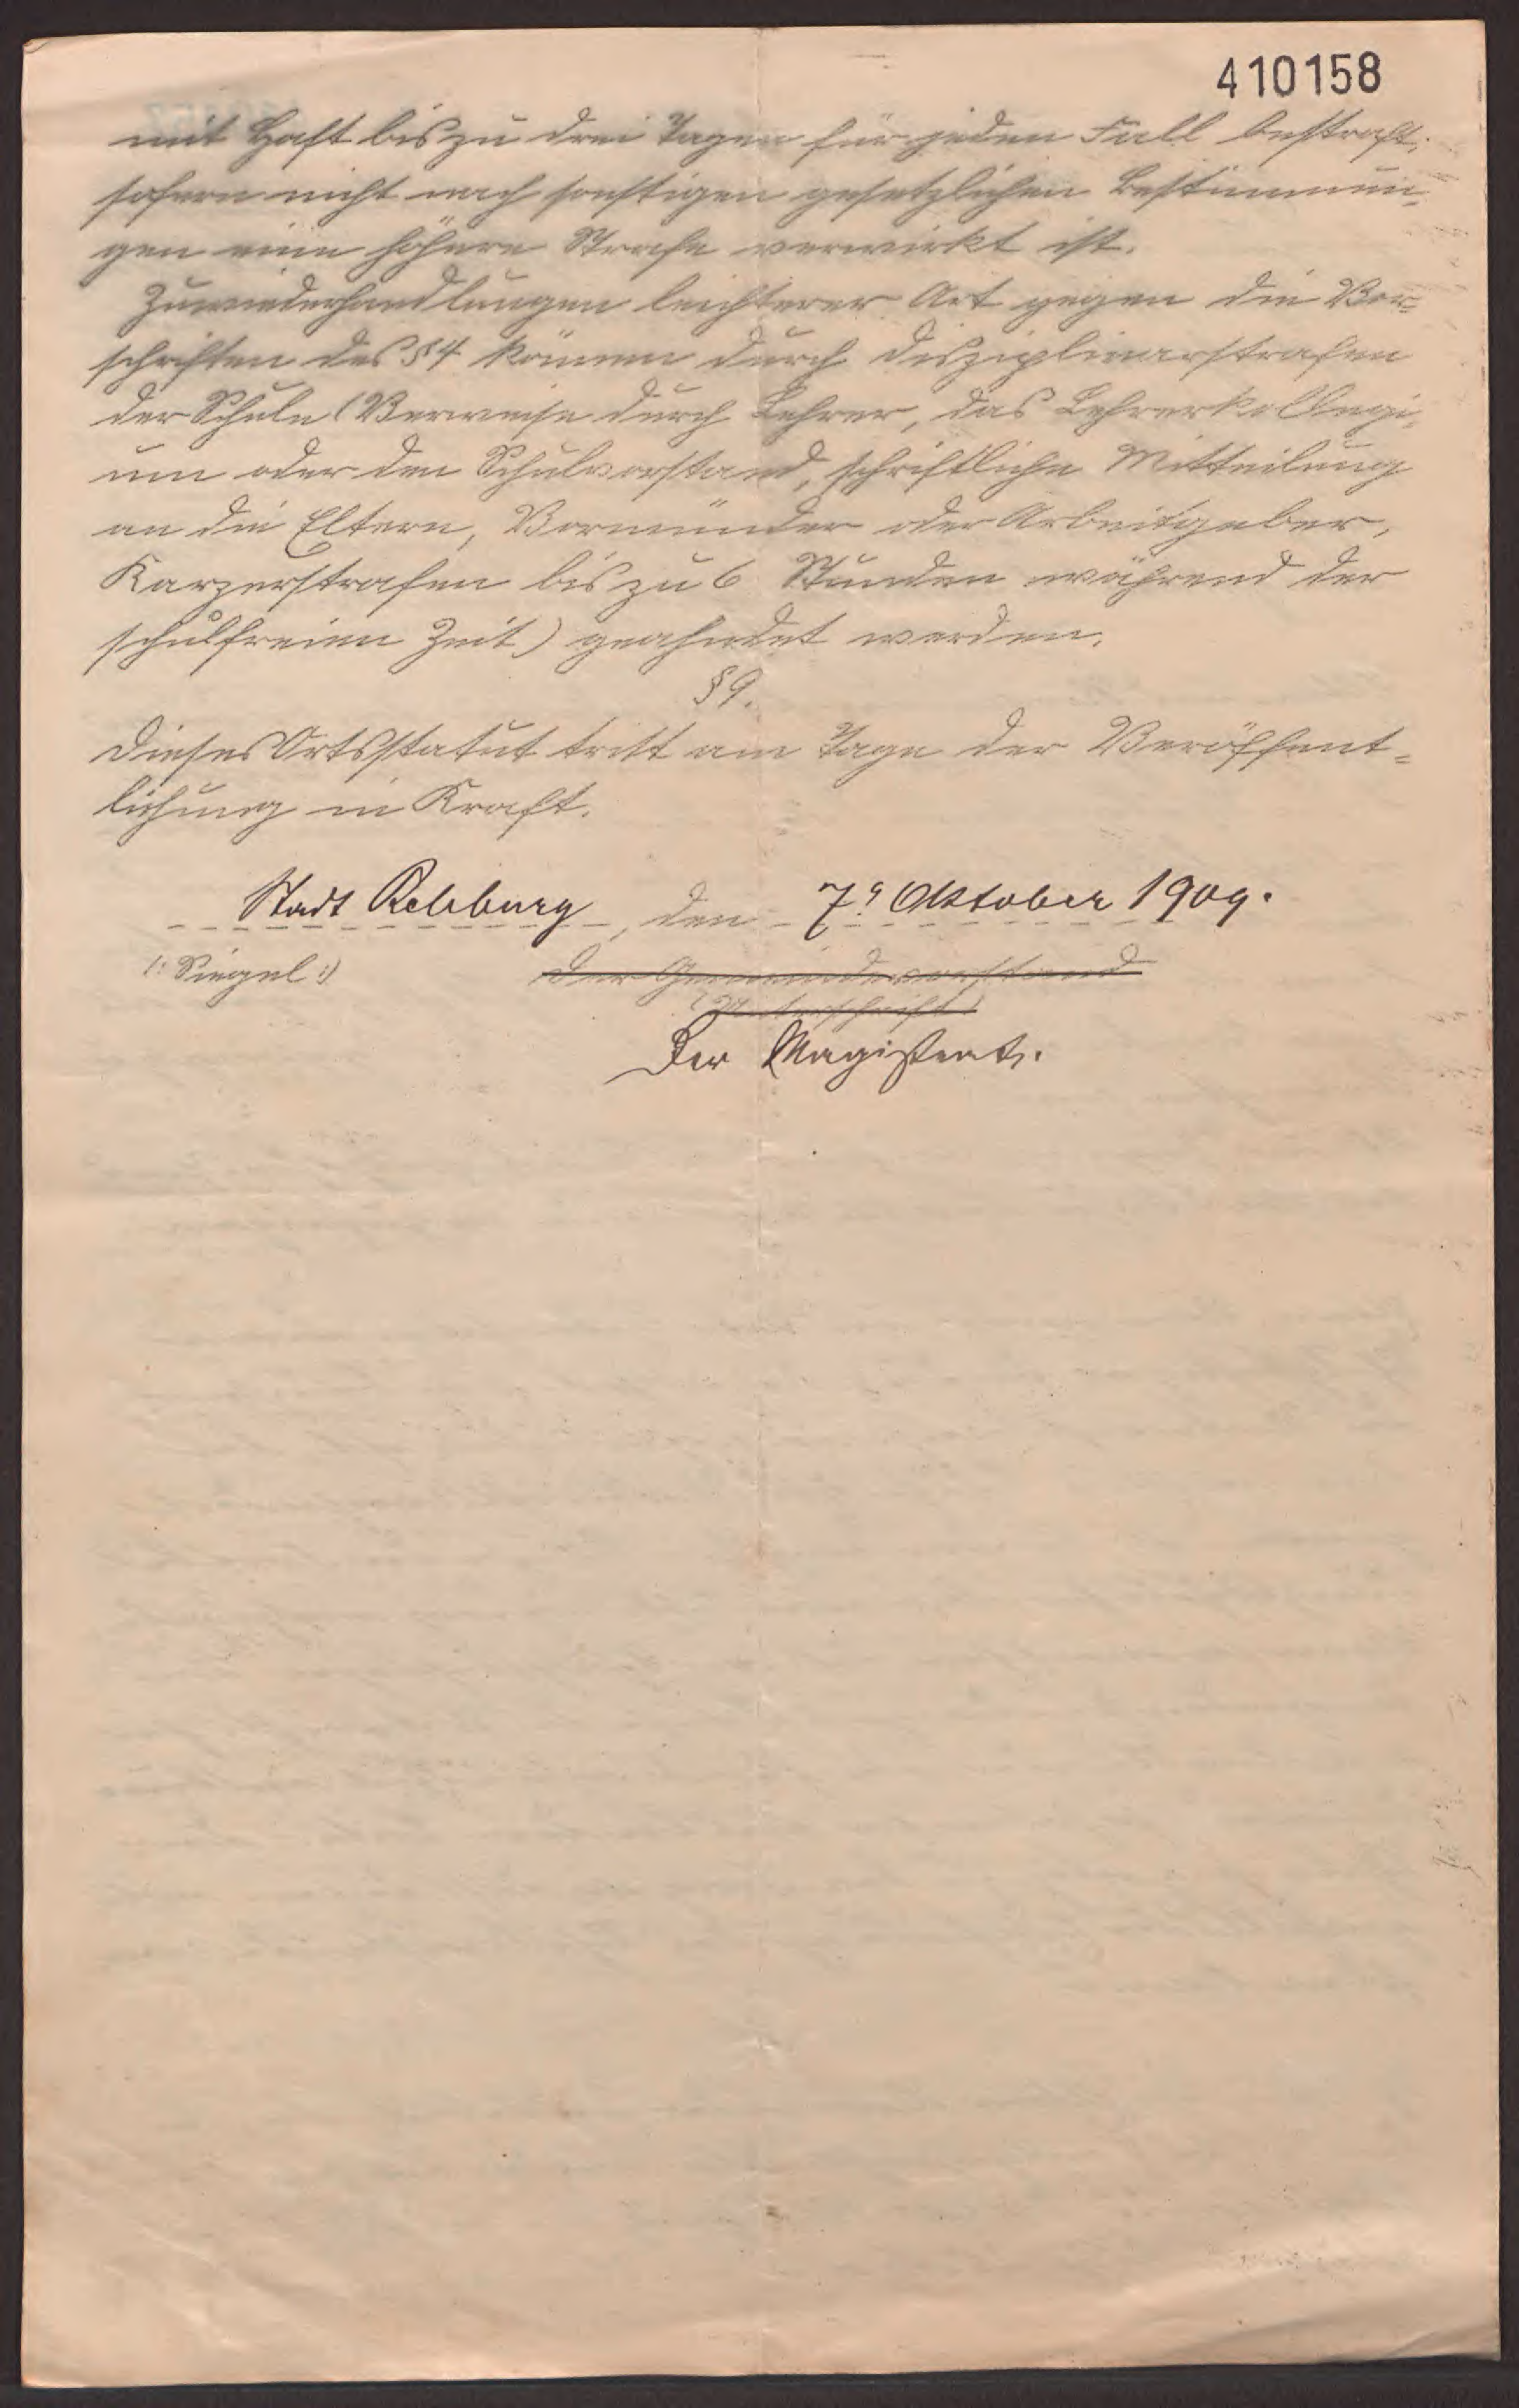 410158
mit Haft bis zu drei Tagen für jeden Fall bestraft,
sofern nicht nach sonstigen gesetzlichen Bestimmun-
gen eine höhere Strafe verwirkt ist.
Zuwiederhandlungen leichterer Art gegen die Vor-
schriften des § 4 können durch Disziplinarstrafen
der Schule (Verweise durch Lehrer, das Lehrerkollegi-
um oder den Schulvorstand, schriftliche Mitteilung
an die Eltern, Vormünder oder Arbeitgeber,
Karzerstrafen bis zu 6 Stunden während der
schulfreien Zeit) geahndet werden.
§ 9.
Dieses Ortsstatut tritt am Tage der Veröffent-
lichung in Kraft.
Stadt Rehburg, den 7. Oktober 1909.
(: Siegel :) Der Gemeindevorstand
(Unterschrift)
Der Magistrat.